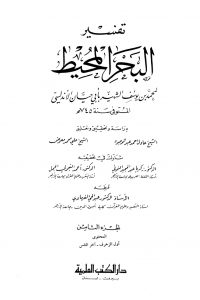 تفسير
البحر المحيط
لمحمد بن يوسف الشهير بأبي حيان الأندلسي
المتوفى سنة ٧٤٥هـ
دراسة وتحقيق وتعليق
الشيخ عادل أحمد عبد الموجود
الشيخ علي محمد معوض
شارك في تحقيقه
الدكتور
الدكتور أحمد النجولي الجمل
قرظه
الأستاذ الدكتور عبد الحي الفرماوي
الجزء الثامن
المحتوى
أول الزخرف - آخر الناس
دار الكتب العلمية
بيروت - لبنان